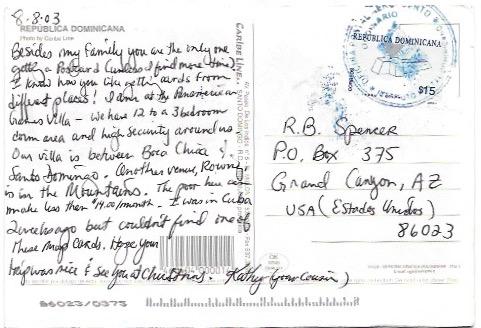 8.8.03
REPUBLICA DOMINICANA
Photo by Caribe Line
Besides my family you are the only one
getting a Postcard (unless I find more time).
I know how you like getting cards from
different places! I am at the Panamerican
Games Villa - We have 12 to a 3 bedroom
dorm area and high security around us.
Our villa is between Boca Chica &
Santo Domingo. Another venue, Rowing
is in the Mountains. The poor here
make less than $400/month. I was in Cuba
2 weeks ago but couldn't find one of
These Map Cards. Hope your
was nice & see you at Christmas. Kathy (your cousin)
CARIBE LINE
SANTO DOMINGO
REPUBLICA DOMINICANA
CORREOS
$15
R.B. Spencer
P.O. Box 375
Grand Canyon, AZ
USA (Estados Unidos)
86023
86023/0375